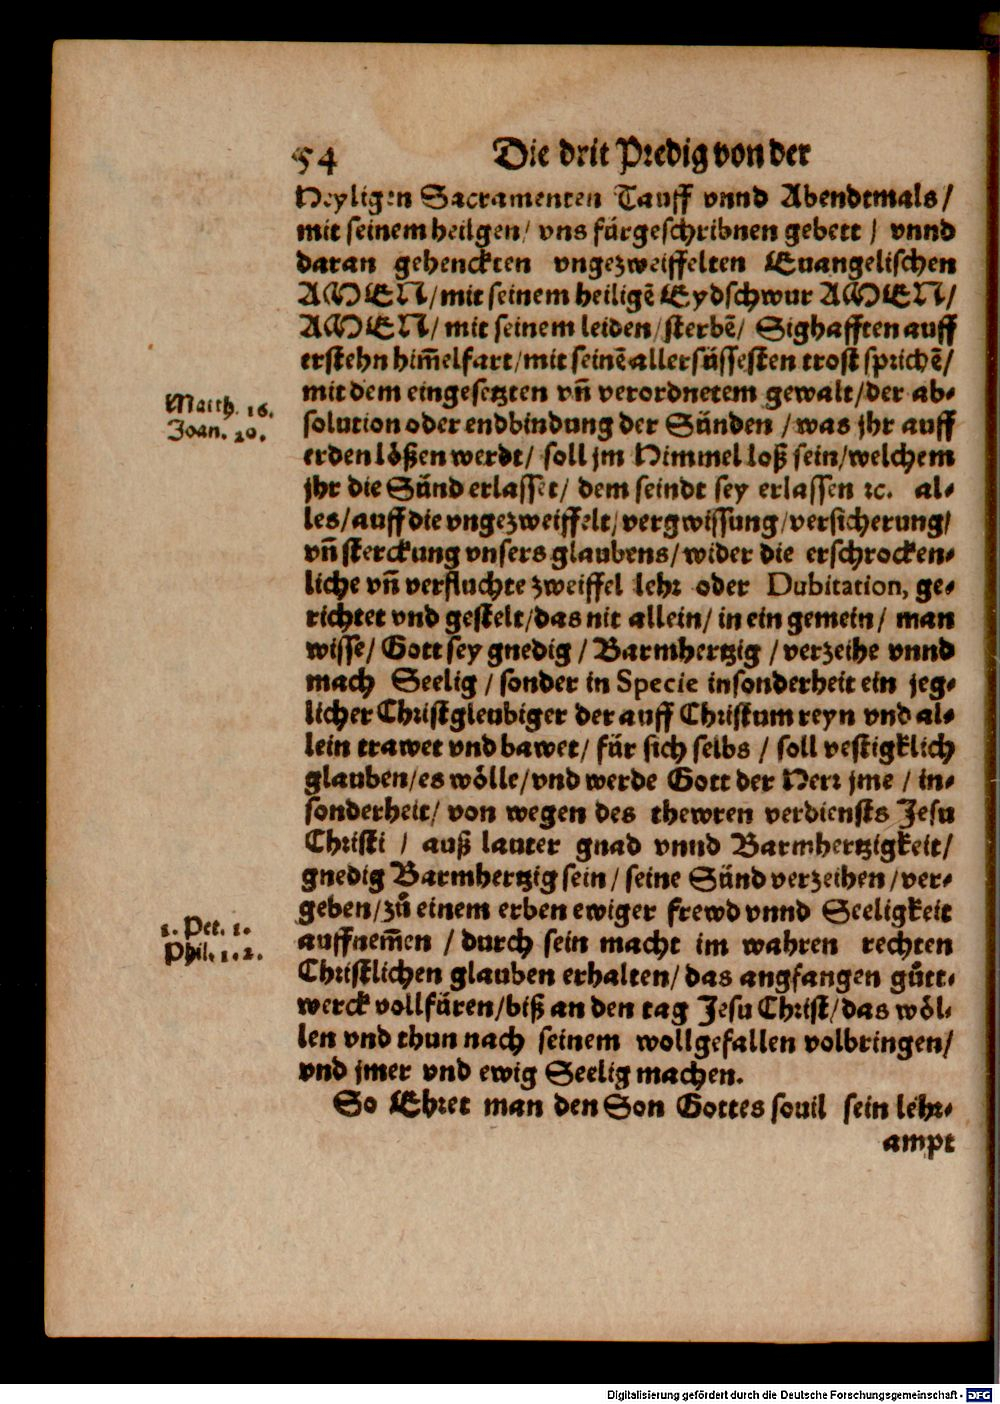 54 Die drit Predig von der
Heyligen Sacramenten Tauff vnnd Abendtmals /
mit seinem heilgen / vns fürgeschribnen gebett / vnnd
daran gehenckten vngezweiffelten Euangelischen
AMEN / mit seinem heiligē Eydschwur AMEN /
AMEN / mit seinem leiden / sterbē / Sighafften auff
erstehn him̄elfart / mit seinē allersüssesten trost sprichē /
mit dem eingesetzten vn̄ verordnetem gewalt / der ab⸗
Matth. 16.
solution oder endbindung der Sünden / was jhr auff
Joan. 20.
erden lößen werdt / soll jm Himmel loß sein / welchem
jhr die Sünd erlasset / dem seindt sey erlassen ꝛc. al⸗
les / auff die vngezweiffelt / vergwissung / versicherung /
vn̄ sterckung vnsers glaubens / wider die erschrocken⸗
liche vn̄ verfluchte zweiffel lehr oder Dubitation, ge⸗
richtet vnd gestelt / das nit allein / in ein gemein / man
wisse / Gott sey gnedig / Barmhertzig / verzeihe vnnd
mach Seelig / sonder in Specie insonderheit ein jeg⸗
licher Christgleubiger der auff Christum reyn vnd al⸗
lein trawet vnd bawet / für sich selbs / soll vestigklich
glauben / es wölle / vnd werde Gott der Herr jme / in⸗
sonderheit / von wegen des thewren verdiensts Jesu
Christi / auß lauter gnad vnnd Barmhertzigkeit /
gnedig Barmhertzig sein / seine Sünd verzeihen / ver⸗
geben / zů einem erben ewiger frewd vnnd Seeligkeit
1. Pet. 1.
auffnem̄en / durch sein macht im wahren rechten
Phil. 1. 2.
Christlichen glauben erhalten / das angfangen gůtt⸗
werck vollfüren / biß an den tag Jesu Christ / das wöl⸗
len vnd thun nach seinem wollgefallen volbringen /
vnd jmer vnd ewig Seelig machen.
So Ehret man den Son Gottes souil sein lehr⸗
ampt
Digitalisierung gefördert durch die Deutsche Forschungsgemeinschaft - DFG